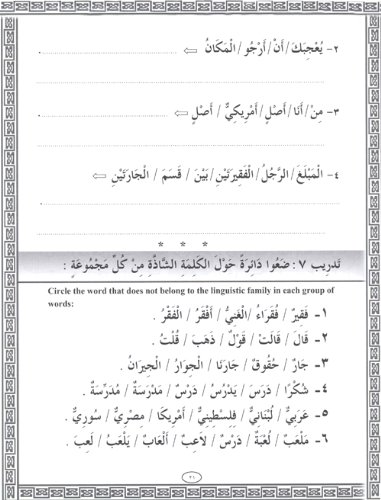 ٢- يُعْجِبَكَ / أَنْ / أَرْجُو / الْمَكَانُ ⇦
٣- مِنْ / أَنَا / أَصْلٍ / أَمْرِيكِيٍّ / أَصْلٍ ⇦
٤- الْمَبْلَغَ / الرَّجُلُ / الْفَقِيرَتَيْنِ / بَيْنَ / قَسَمَ / الْجَارَتَيْنِ ⇦
* * *
تَدرِيب ٧ : ضَعُوا دَائِرَةً حَوْلَ الكَلِمَةِ الشَّاذَّةِ مِنْ كُلِّ مَجْمُوعَةٍ :
Circle the word that does not belong to the linguistic family in each group of
words:
١- فَقِيرٌ / فُقَرَاءُ / الْغَنِيُّ / أَفْقَرُ / الْفَقْرُ .
٢- قَالَ / قَالَتْ / قَوْلٌ / ذَهَبَ / قُلْتُ .
٣- جَارٌ / حُقُوقٌ / جَارَنَا / الْجِوَارُ / الْجِيرَانُ .
٤- شُكْرًا / دَرَسَ / يَدْرُسُ / دَرْسٌ / مَدْرَسَةٌ / مُدَرِّسَةٌ .
٥- عَرَبِيٌّ / لُبْنَانِيٌّ / فِلِسْطِينِيٌّ / أَمْرِيكَا / مِصْرِيٌّ / سُورِيٌّ .
٦- مَلْعَبٌ / لُعْبَةٌ / دَرْسٌ / لاَعِبٌ / أَلْعَابٌ / يَلْعَبُ / لَعِبَ .
٢١